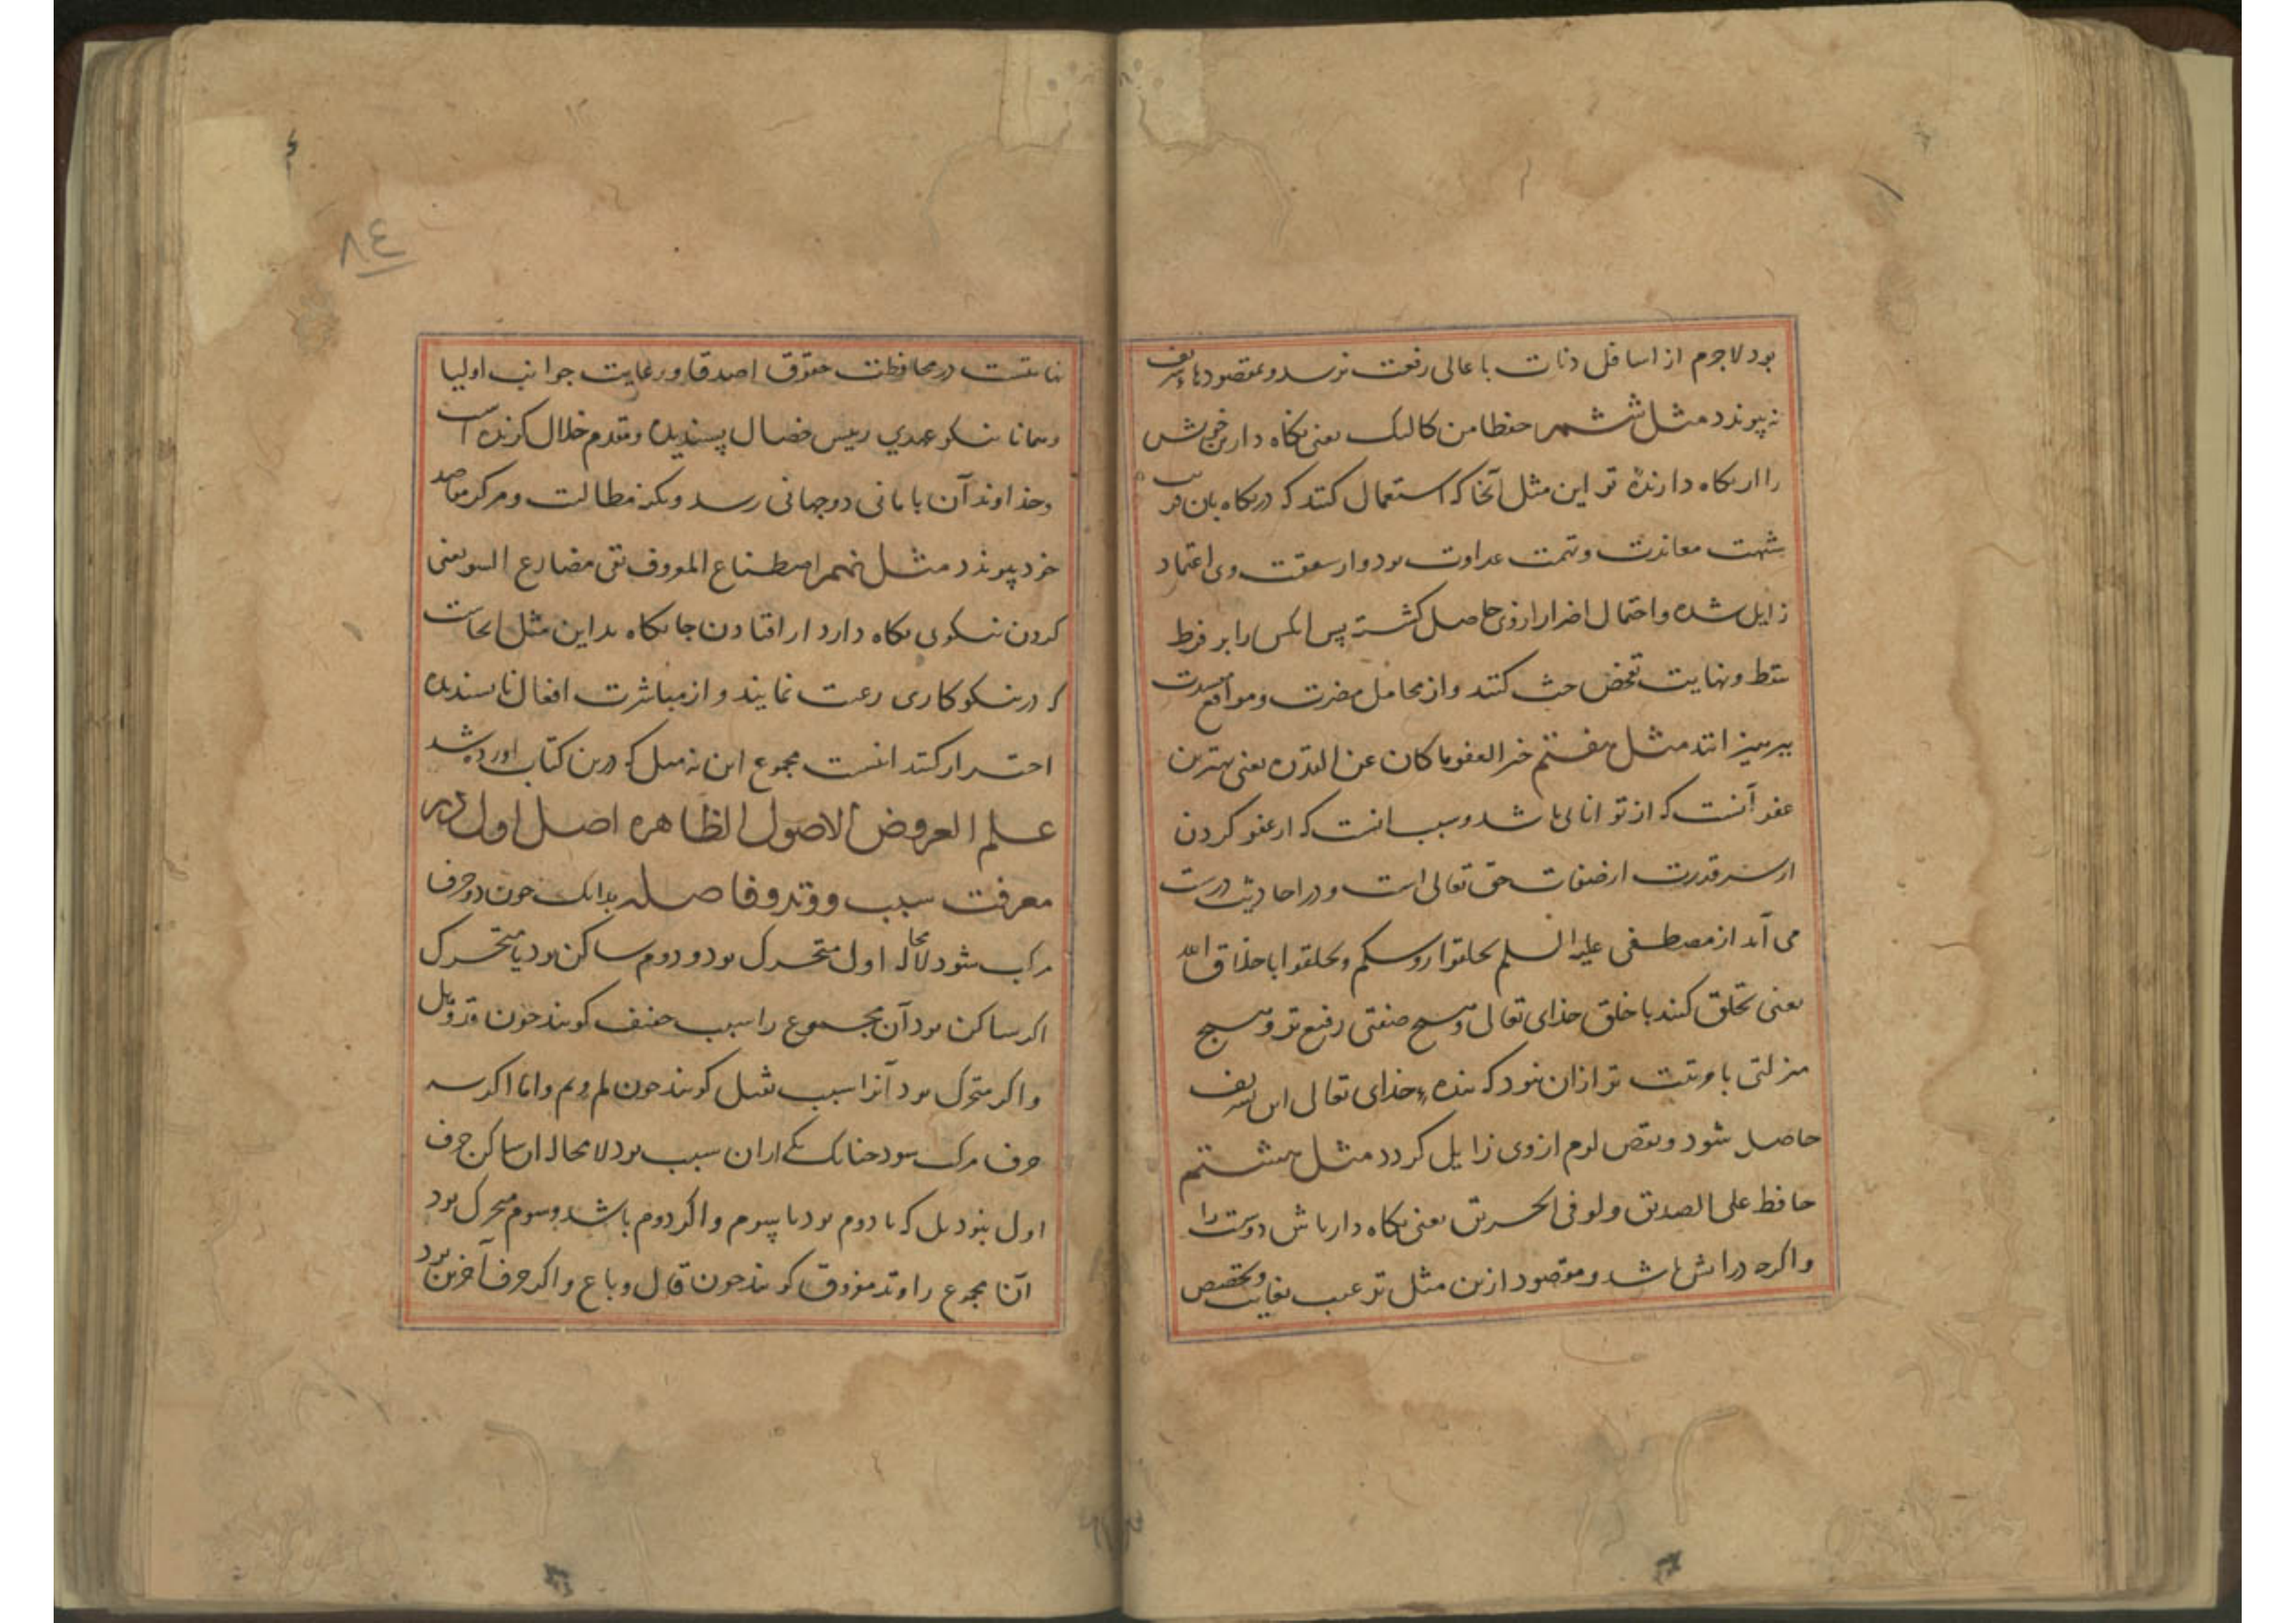 بود لاجرم از اسافل دنات باعالی رفعت نرسد و بمقصودها
نه پیوندد مثل ششم حفظا من کالیک یعنی نکاه دار بن خویش
را از نکاه دارنده تو این مثل آنجا که استعمال کنند که در نکاه بان
شبهت معاندت و تهمت عداوت بود و از وی اعتماد
زایل شده و احتمال اضرار از وی حاصل کشته پس انکس را بر فرط
و نهایت تفحص حث کنند و از محامل مضرت و مواقع
بپرهیزانند مثل هفتم خیر العفو ما کان عن القدره یعنی بهترین
عفو آنست که از توانای باشد و سبب انست که از عفو کردن
از سر قدرت از صفات حق تعالی است و در احادیث درست
می آید از مصطفی علیه السلم و تخلقوا باخلاق الله
یعنی تخلق کنند با خلق خدای تعالی و هیچ صفتی رفیع تر و هیچ
منزلتی با تر ازان نبود که بنده خدای تعالی این
حاصل شود و نقص لوم از وی زایل کردد مثل هشتم
حافظ علی الصدیق و لو فی الحریق یعنی نکاه دار باش دوست را
واکرچه در اتش باشد و مقصود ازین مثل ترغیب بغایت و تخصیص
در محافظت حقوق اصدقا و رعایت جوانب اولیا
و همانا نیکو عهدی رییس خصال پسندیده و مقدم خلال کزیده است
و خداوند آن بامانی دوجهانی رسد و بکنه مطالب و مرکز مقاصد
خود پیوندد مثل نهم اصطناع المعروف تقی مصارع السو یعنی
کردن نیکوی نکاه دارد از افتادن جایکاه بد این مثل انجاست
که در نیکوکاری رغبت نمایند و از مباشرت افعال ناپسندیده
احتراز کنند اینست مجموع این نه مثل که درین کتاب اورده شد
علم العروض الاصول الظاهره اصل اول در
معرفت سبب و وتد و فاصله بدانک چون دو حرف
مرکب شود لامحاله اول متحرک بود و دوم ساکن بود یا متحرک
اکر ساکن بود آن مجموع را سبب خفیف کویند چون قد و بل
و اکر متحرک بود آنرا سبب ثقیل کویند چون لم و بم و اما اکر سه
حرف مرکب شود چنانک یکی ازان سبب بود لامحاله ان ساکن حرف
اول نبود بل که یا دوم بود یا سیوم و اکر دوم باشد و سوم متحرک بود
آنا مجموع را وتد مفروق کویند چون قال و باع و اکر حرف آخرین بود
٨٤